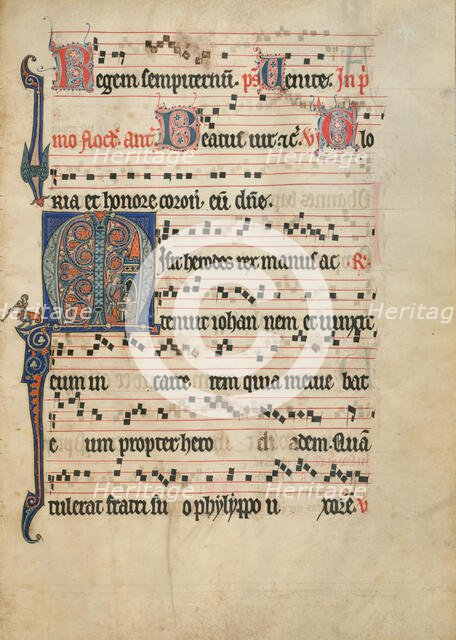 Regem sempiternū. ps Venite. In p
mo noct. ant. Beatus uir. ꝛc̄. V Glo
ria et honore coron. eū dn̄e.
Misit herodes rex manus ac R.
tenuit iohan nem et uinxit
eum in carce rem quia metue bat
e um propter hero di adem. Quā
tulerat fratri su o phylyppo u xorē. V
Heritage